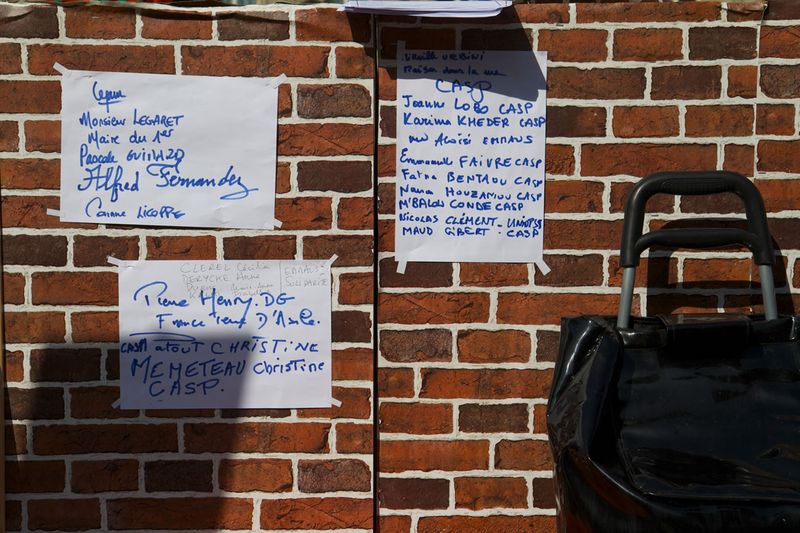 Monsieur LEGARET
Maire du 1er
Pascale
Alfred Fernandez
Corinne LICOPPE
CLEREL
DERYCKE Anne
EMMAÜS
SOLIDARITÉ
Pierre Henry. DG
France terre D'Asile.
CASP atout CHRISTINE
MEMETEAU Christine
CASP.
dans la rue
CASP
Joann LOBO CASP
Karima KHEDER CASP
Aloïsi EMMAUS
Emmanuelle FAIVRE CASP
Fatna BENTAOU CASP
HOUZAMOU CASP
M'BALOU CONDE CASP
NICOLAS CLÉMENT -
MAUD GIBERT - CASP